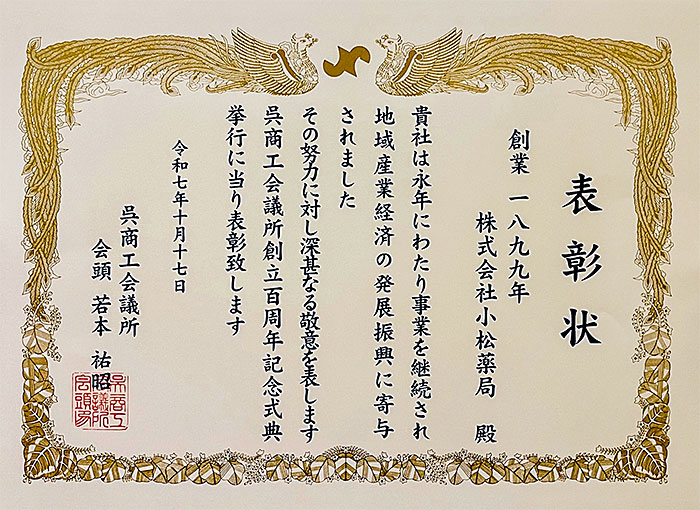 表彰状
創業 一八九九年
株式会社小松薬局 殿
貴社は永年にわたり事業を継続され
地域産業経済の発展振興に寄与
されました
その努力に対し深甚なる敬意を表します
呉商工会議所創立百周年記念式典
挙行に当り表彰致します
令和七年十月十七日
呉商工会議所
会頭 若本 祐昭
呉商工
会議所
会頭印